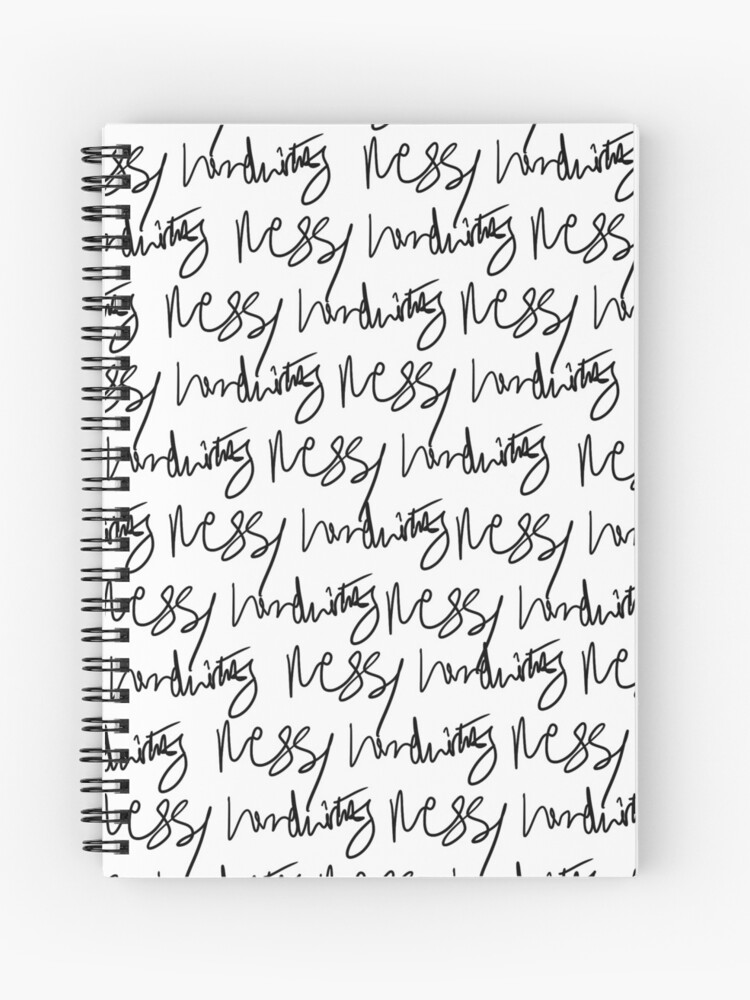 ssy handwriting messy handwriting
dwriting messy handwriting mess
ng messy handwriting messy ha
ssy handwriting messy handwriting
handwriting messy handwriting mes
iting messy handwriting messy han
messy handwriting messy handwriti
handwriting messy handwriting mes
dwriting messy handwriting messy
messy handwriting messy handwriti